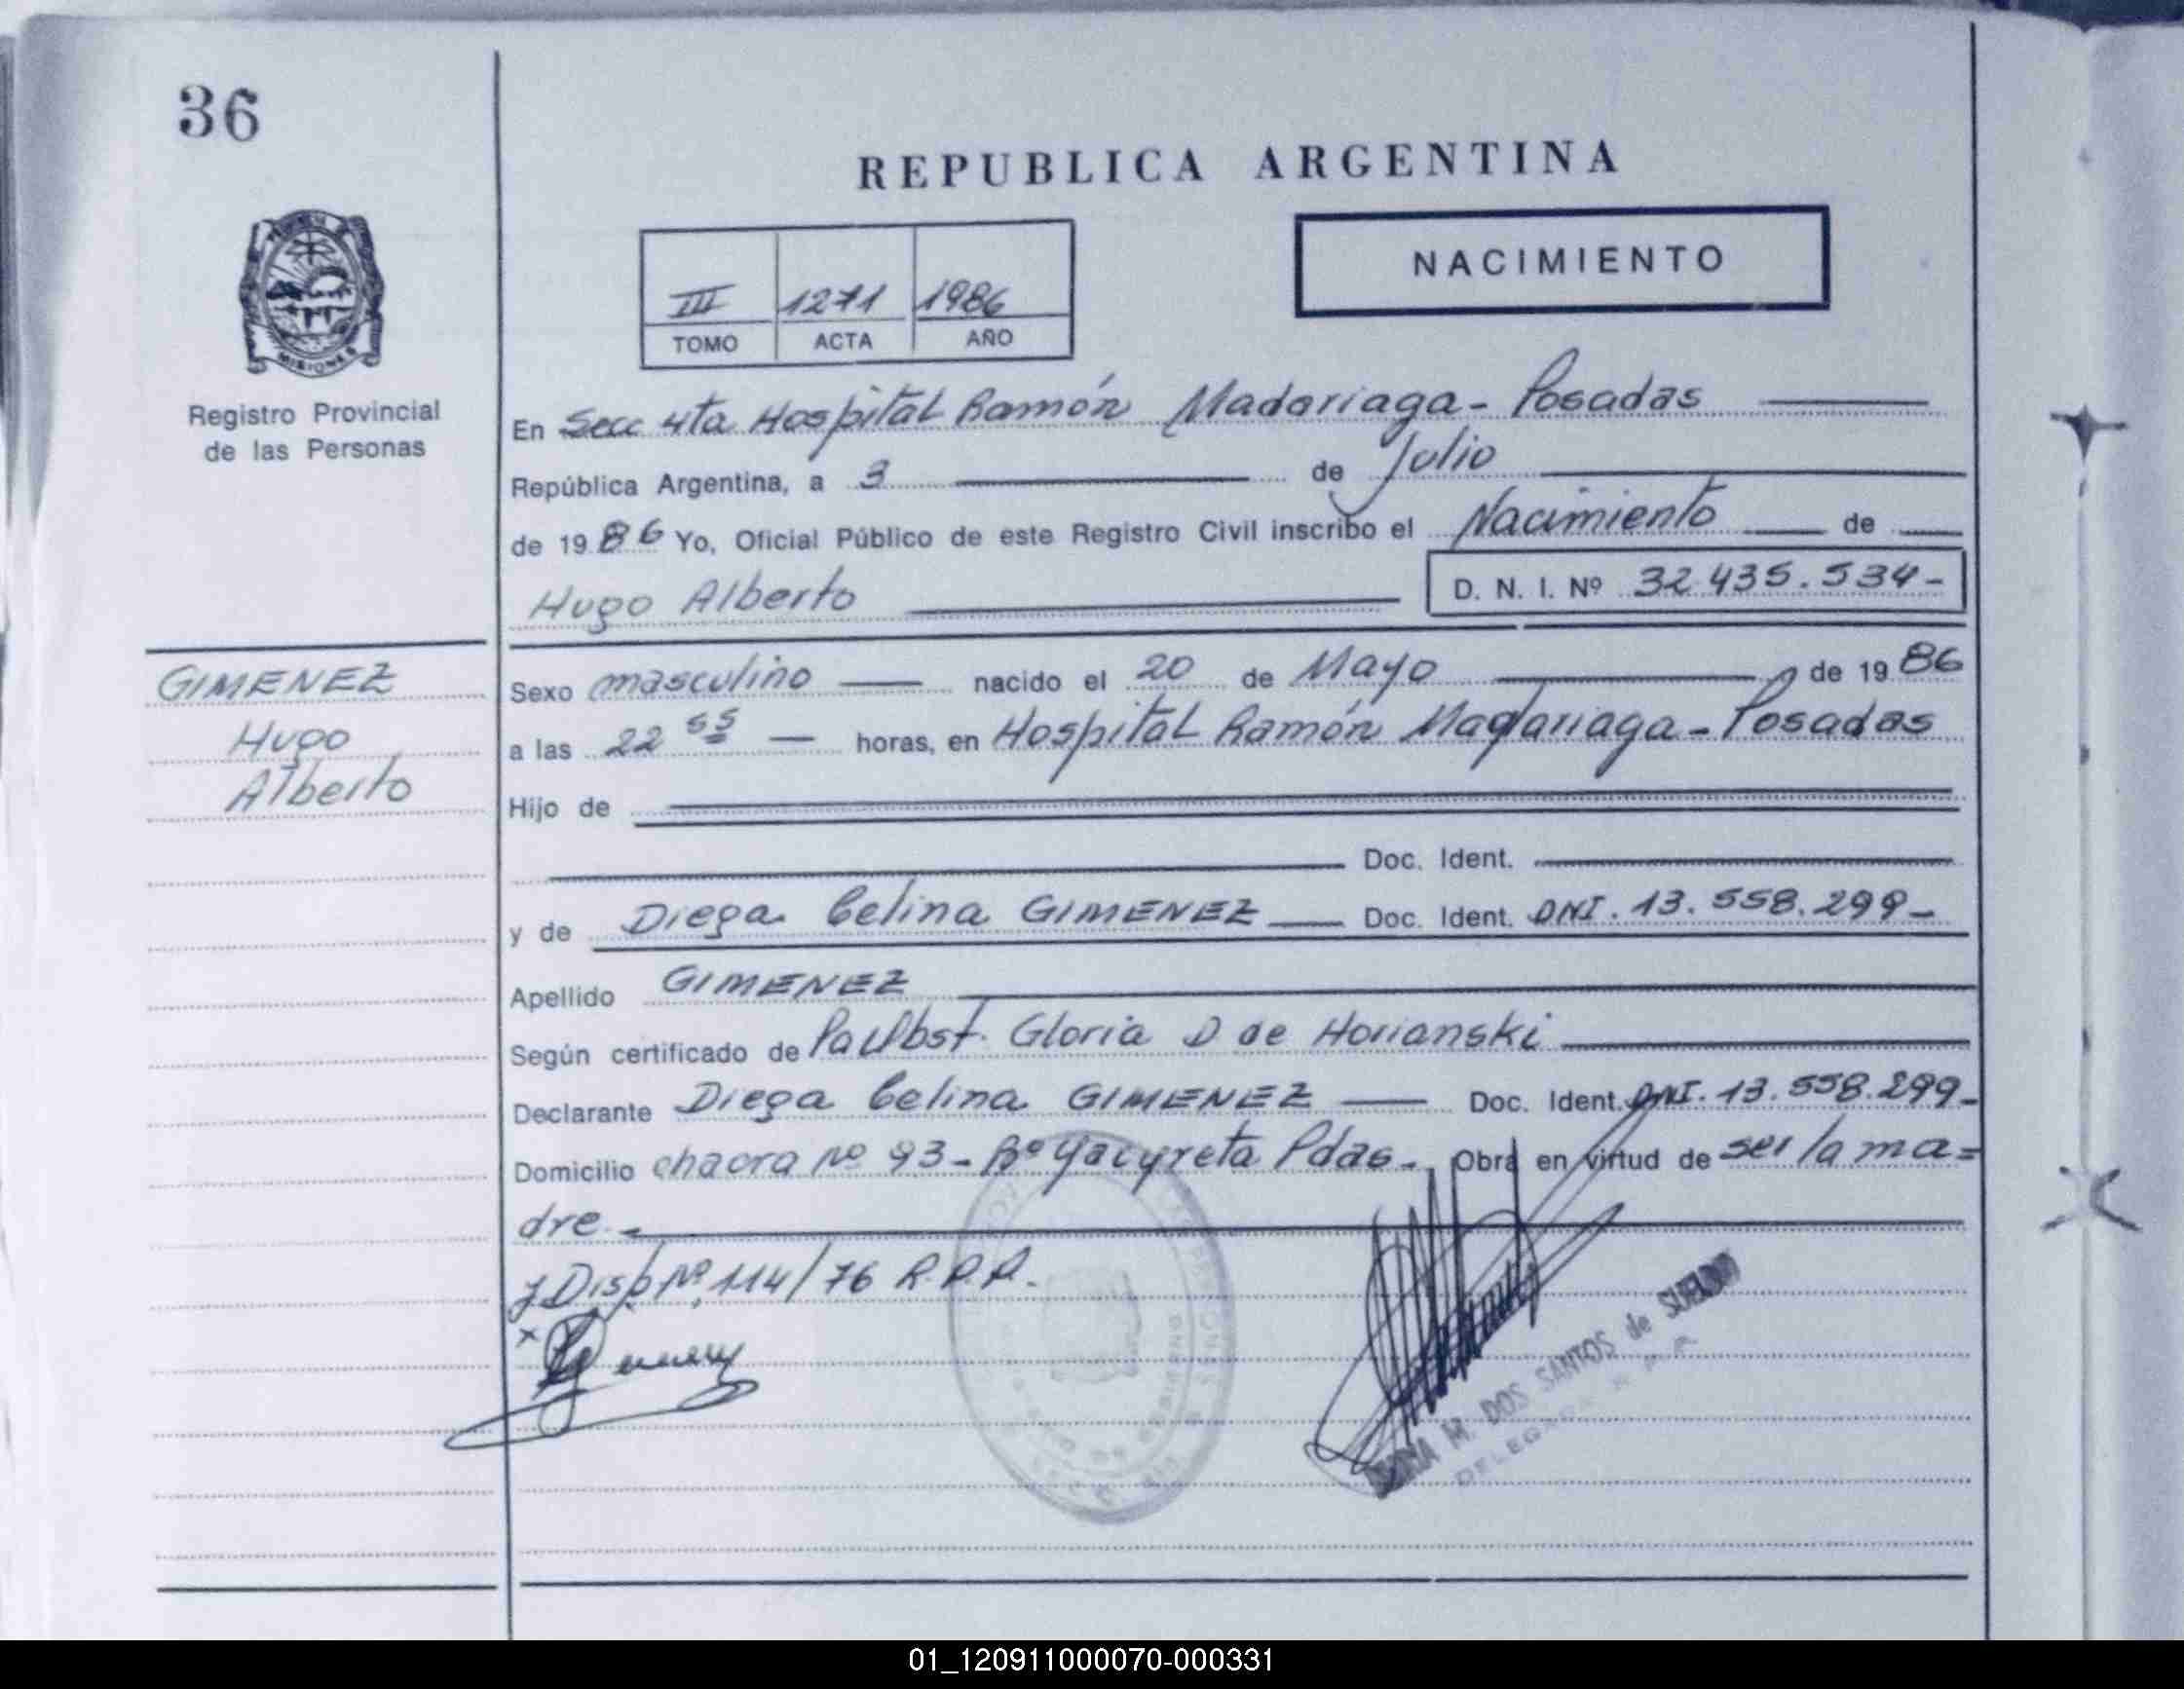 36
REPUBLICA ARGENTINA
NACIMIENTO
III 1271 1986
TOMO ACTA AÑO
MISIONES
Registro Provincial
de las Personas
En Secc 4ta Hospital Ramón Madariaga - Posadas
República Argentina, a 3 de Julio
de 1986 Yo, Oficial Público de este Registro Civil inscribo el Nacimiento de
Hugo Alberto D. N. I. Nº 32.435.534-
GIMENEZ
Hugo
Alberto
Sexo masculino nacido el 20 de Mayo de 1986
a las 22 55 horas, en Hospital Ramón Madariaga - Posadas
Hijo de
Doc. Ident.
y de Diega Celina GIMENEZ Doc. Ident. DNI. 13.558.299-
Apellido GIMENEZ
Según certificado de Gloria D de Horianski
Declarante Diega Celina GIMENEZ Doc. Ident. DNI. 13.558.299-
Domicilio chacra nº 93 - Bº Yacyreta Pdas. Obra en virtud de ser la ma=
dre -
Disp Nº 114/76 R.P.P.
M. DOS SANTOS de SUELDO
DELEGADA
01_120911000070-000331